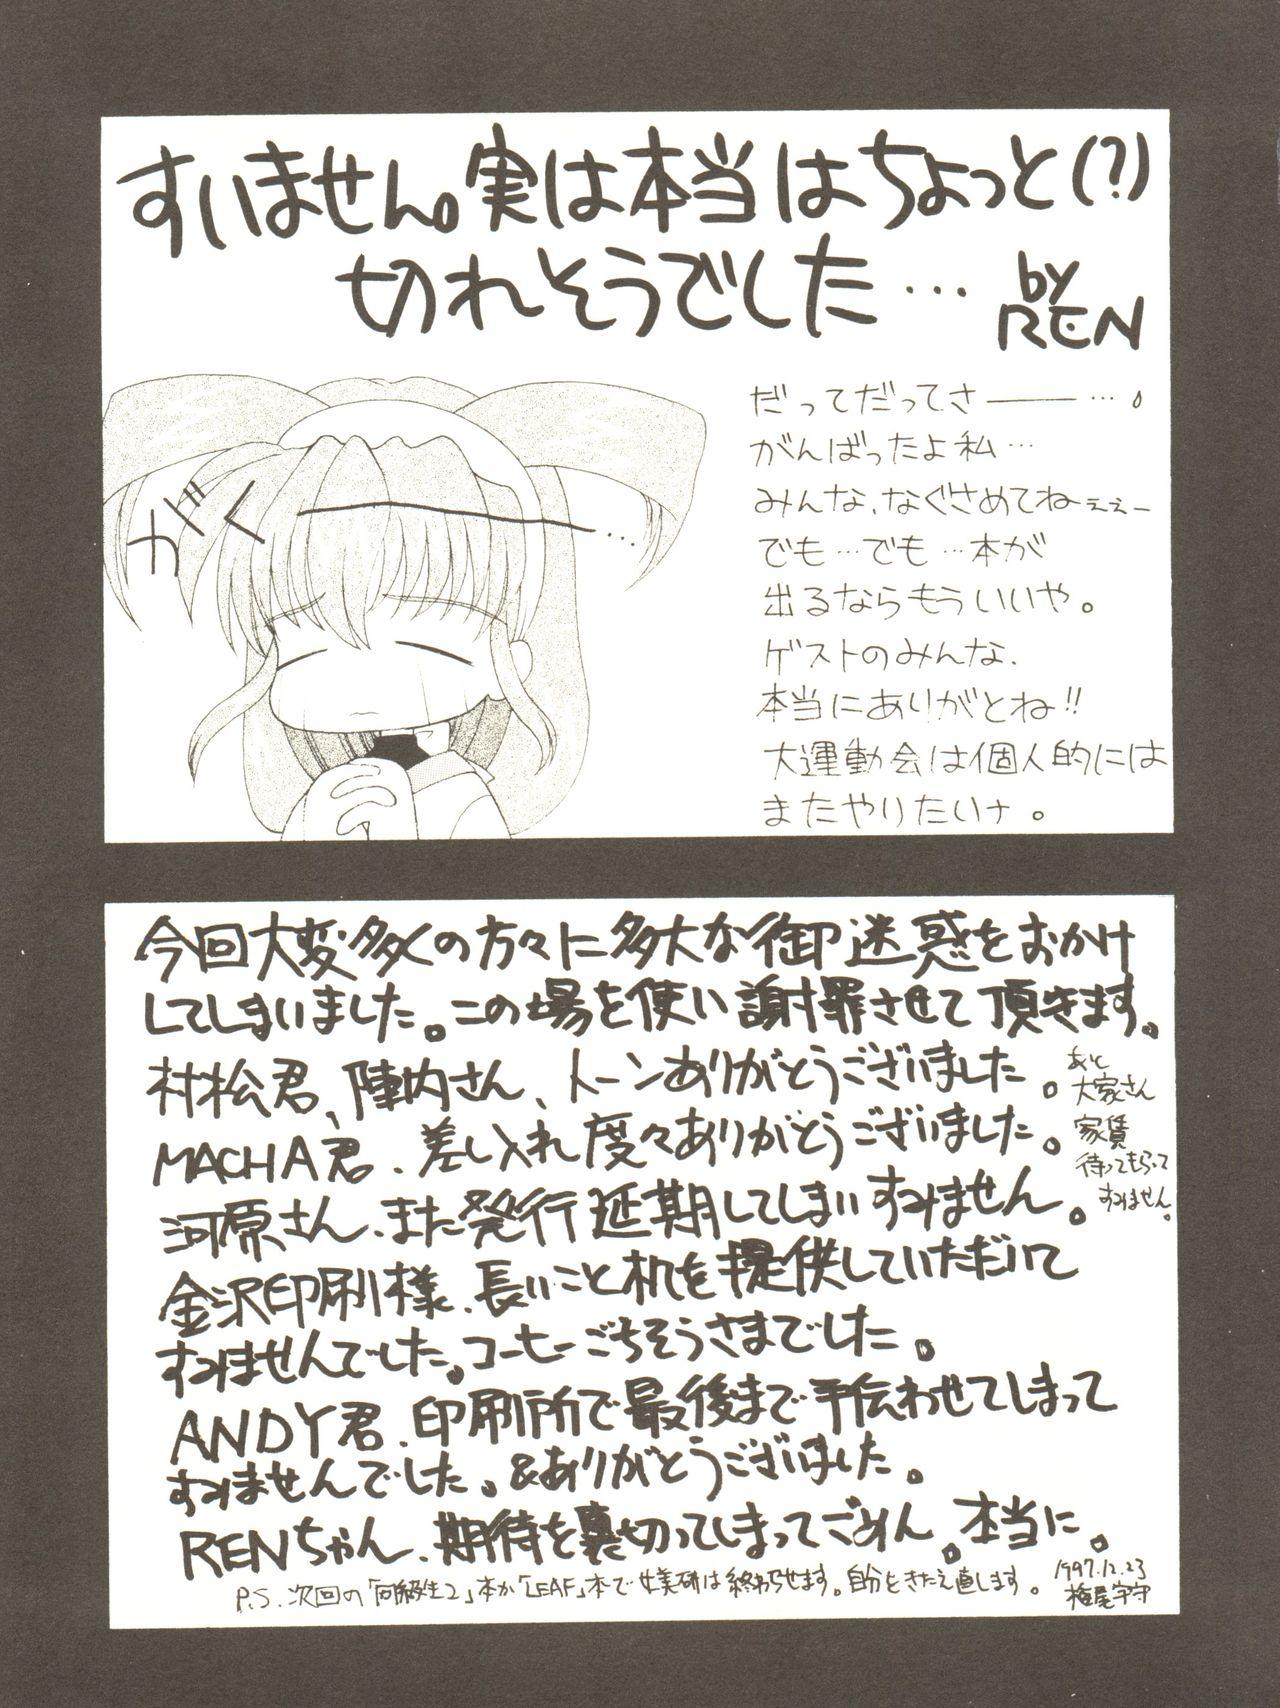 すいません。実は本当はちょっと(?)
切れそうでした…
by
REN
だってだってさー…。
がんばったよ私…
みんな、なぐさめてねぇぇー
でも…でも…本が
出るならもういいや。
ゲストのみんな、
本当にありがとね!!
大運動会は個人的には
またやりたいナ。
がくーーー…
今回大変多くの方々に多大な御迷惑をおかけ
してしまいました。この場を使い謝罪させて頂きます。
村松君、陣内さん、トーンありがとうございました。
MACHA君、差し入れ度々ありがとうございました。
河原さん、また発行延期してしまいすみません。
あと
大家さん
家賃
待ってもらって
すみません。
金沢印刷様、長いこと机を提供していただいて
すみませんでした。コーヒーごちそうさまでした。
ANDY君、印刷所で最後まで手伝わせてしまって
すみませんでした。&ありがとうございました。
RENちゃん、期待を裏切ってしまってごめん。本当に。
P.S.次回の「同級生2」本か「LEAF」本で女美研は終わらせます。自分をきたえ直します。
1997.12.23